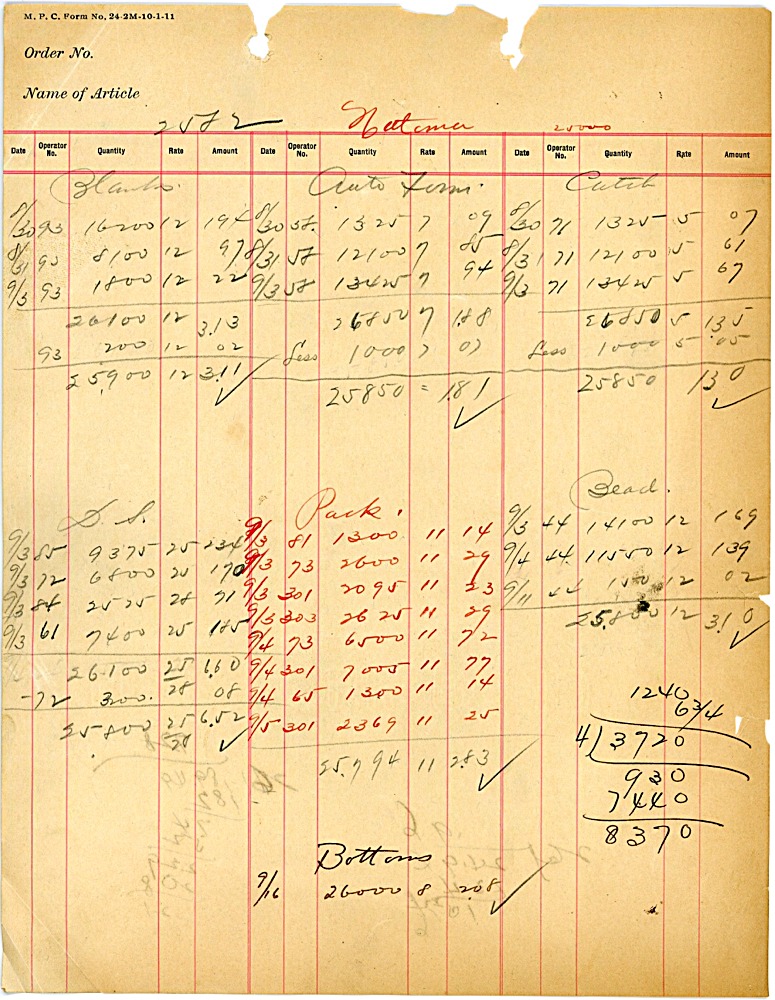 M. P. C. Form No. 24-2M-10-1-11
Order No.
Name of Article
25000
Date Operator No. Quantity Rate Amount Date Operator No. Quantity Rate Amount Date Operator No. Quantity Rate Amount
Blanks. Auto Form. Catch
8/30 93 16200 12 194 8/30 58. 1325 7 09 8/30 71 1325 5 07
8/31 93 8100 12 97 8/31 58 12100 7 85 8/31 71 12100 5 61
9/3 93 1800 12 22 9/3 58 13425 7 94 9/3 71 13425 5 67
26100 12 3.13 26850 7 1.88 26850 5 1.35
93 200 12 02 Less 1000 7 07 Less 1000 5 .05
25900 12 3.11 25850 = 1.81 25850 1.30
D. S. Pack. Bead.
9/3 85 9375 25 234 9/3 81 1300 11 14 9/3 44 14100 12 169
9/3 72 6800 25 170 9/3 73 2600 11 29 9/4 44 11550 12 139
9/3 84 2525 28 71 9/3 301 2095 11 23 9/11 44 150 12 02
9/3 61 7400 25 185 9/3 303 2625 11 29 25,800 12 3.10
9/4 73 6500 11 72
26100 25 6.60 9/4 301 7005 11 77
28
-72 300. 08 9/4 65 1300 11 14
25800 25 6.52 9/5 301 2369 11 25
28
25,794 11 2.83
1240
63/4
4)3720
930
7440
8370
Bottoms
9/16 26000 8 2.08